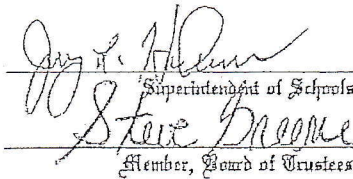 Superintendent of Schools
Steve Greene
Member, Board of Trustees